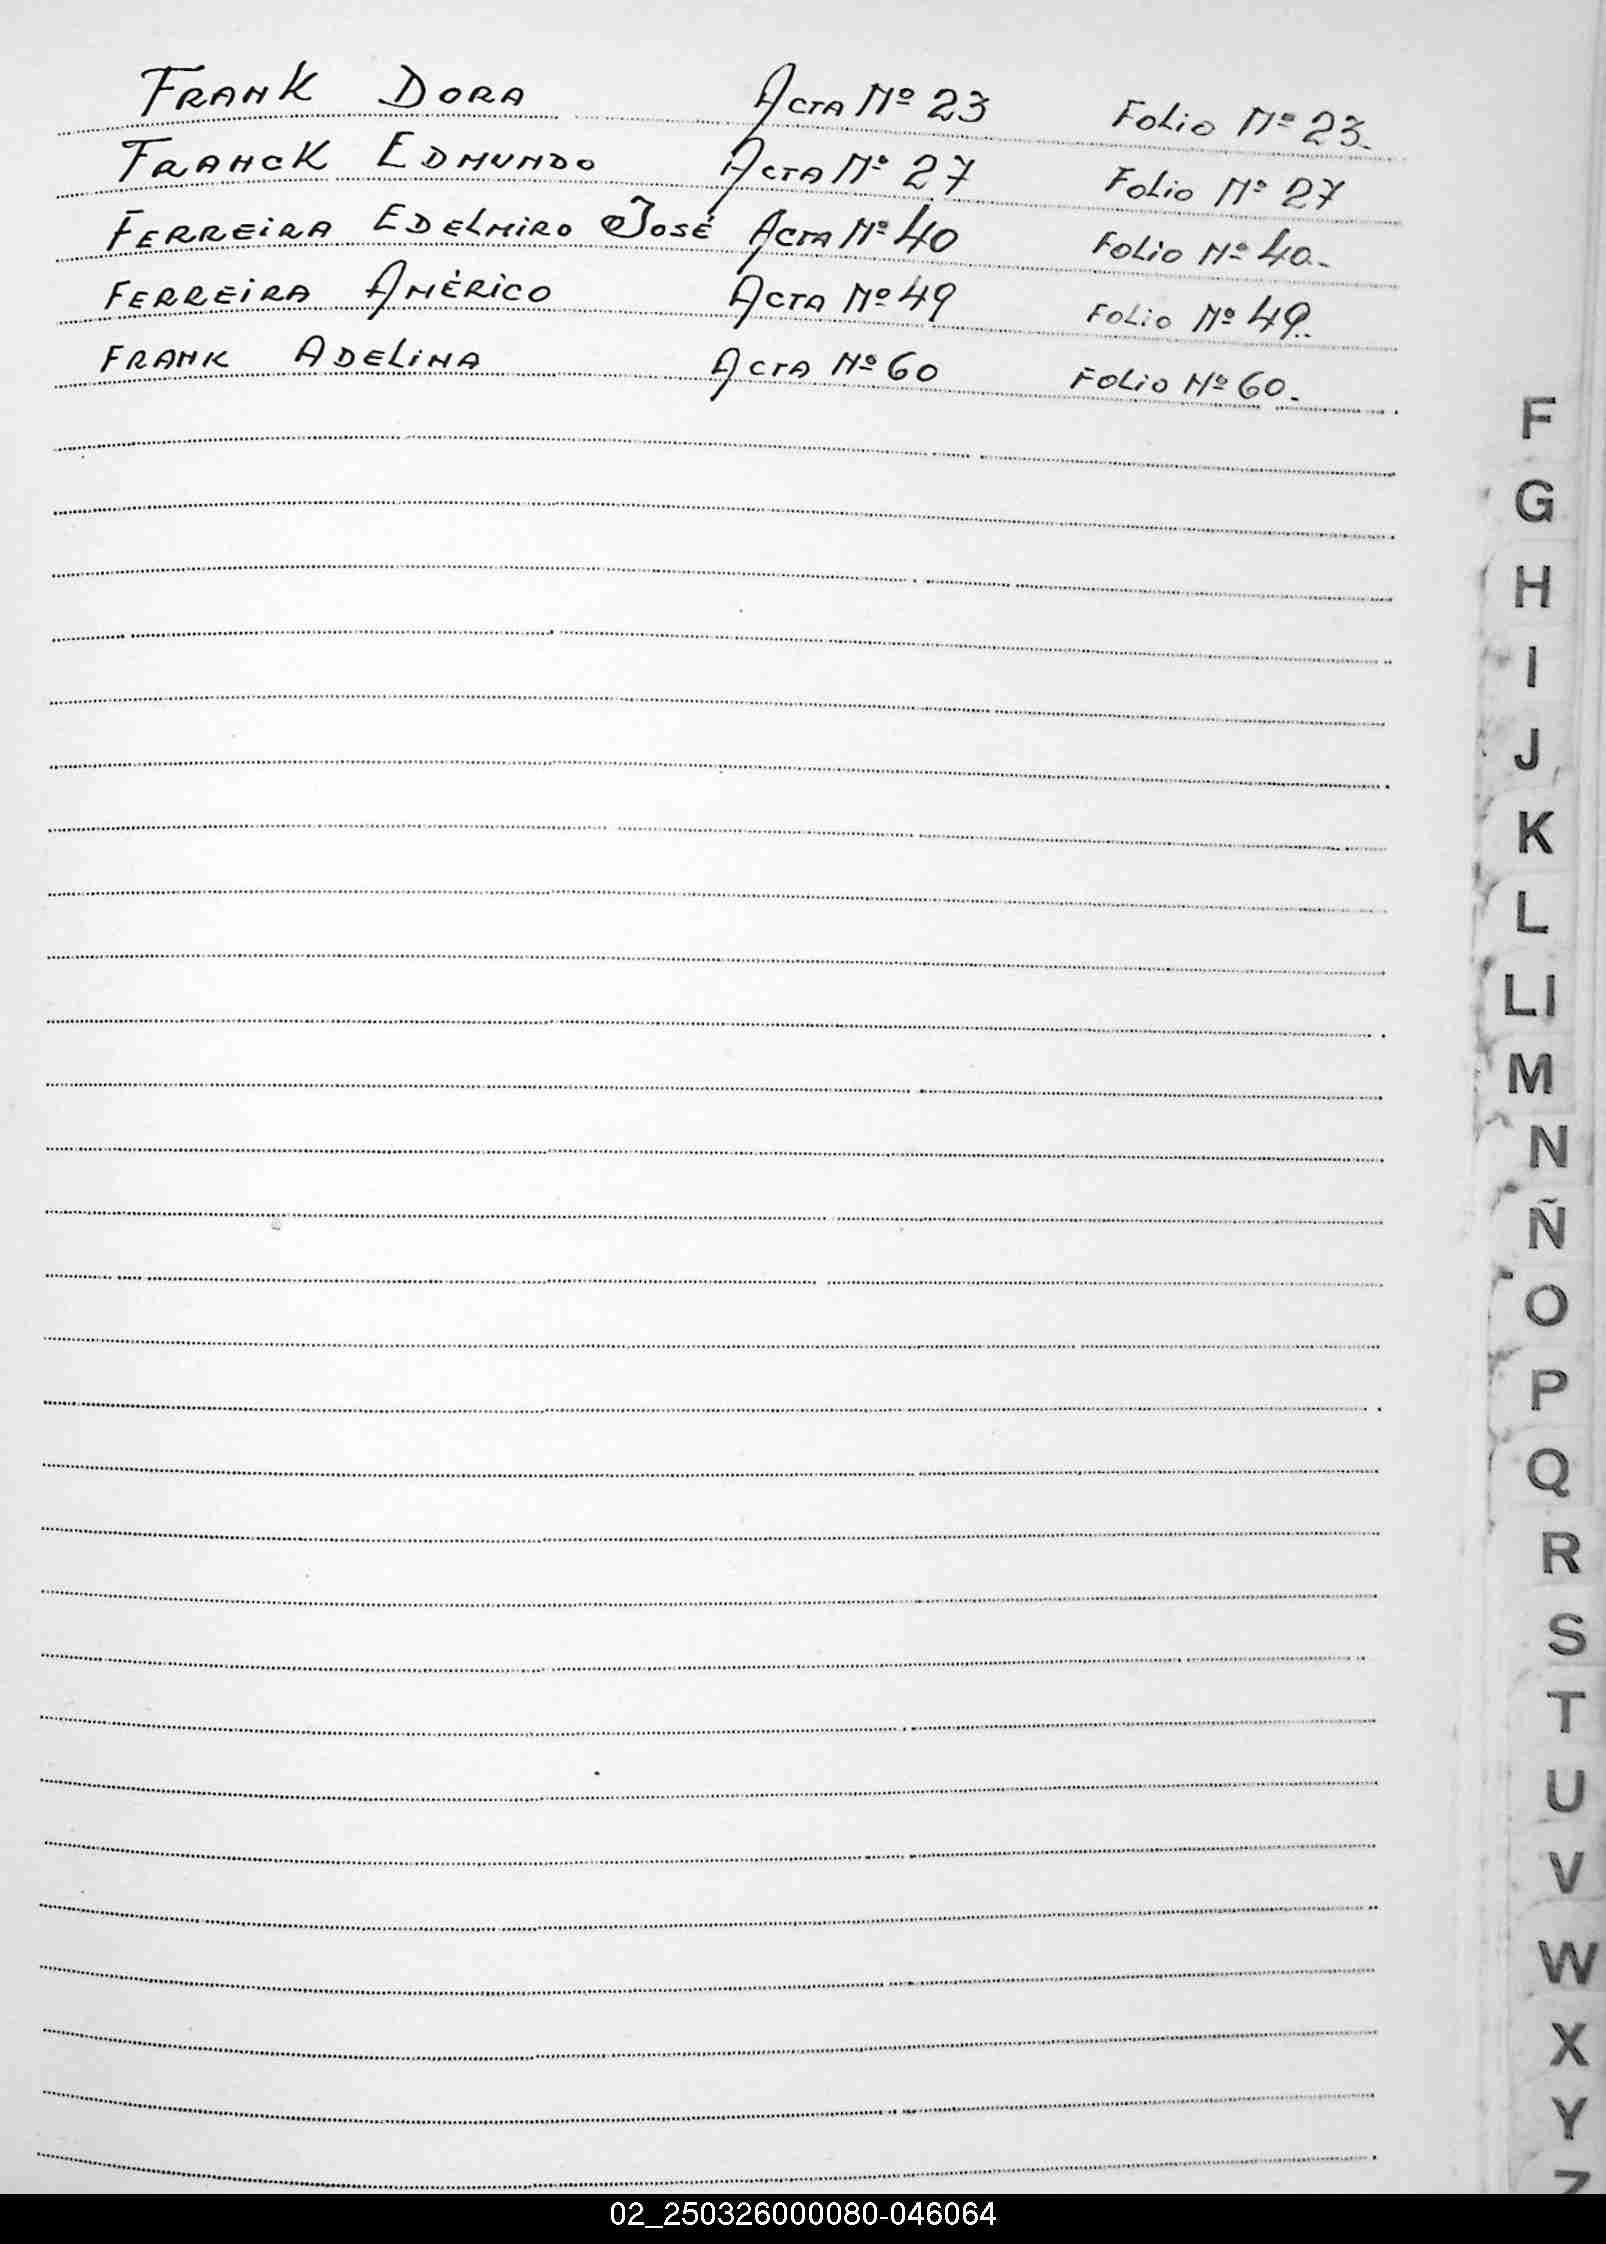 Frank Dora Acta Nº 23 Folio Nº 23.
Franck Edmundo Acta Nº 27 Folio Nº 27
Ferreira Edelmiro José Acta Nº 40 Folio Nº 40.
Ferreira Américo Acta Nº 49 Folio Nº 49.
Frank Adelina Acta Nº 60 Folio Nº 60.
F
G
H
I
J
K
L
Ll
M
N
Ñ
O
P
Q
R
S
T
U
V
W
X
Y
Z
02_250326000080-046064